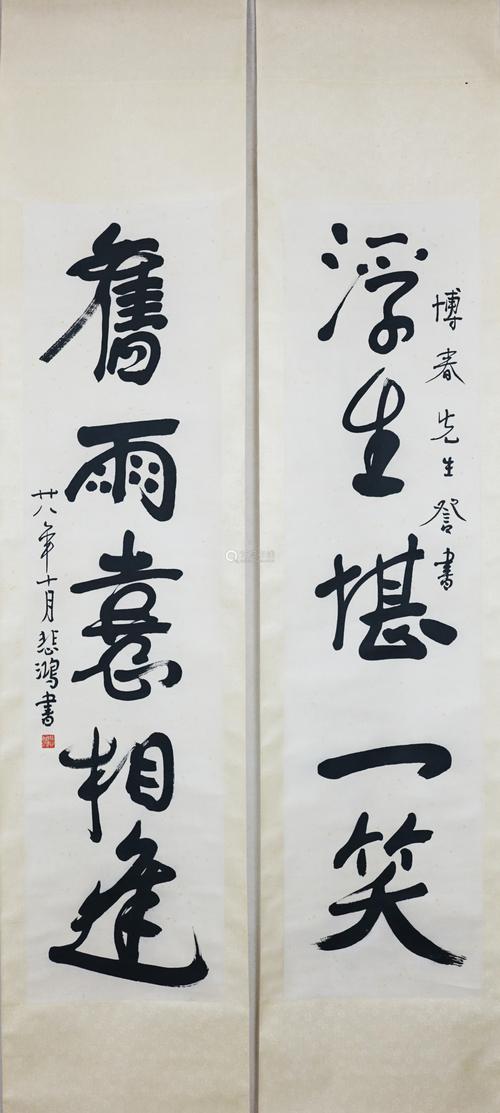 博春先生詧書
浮生堪一笑
舊雨憙相逢
廿八年十月悲鴻書